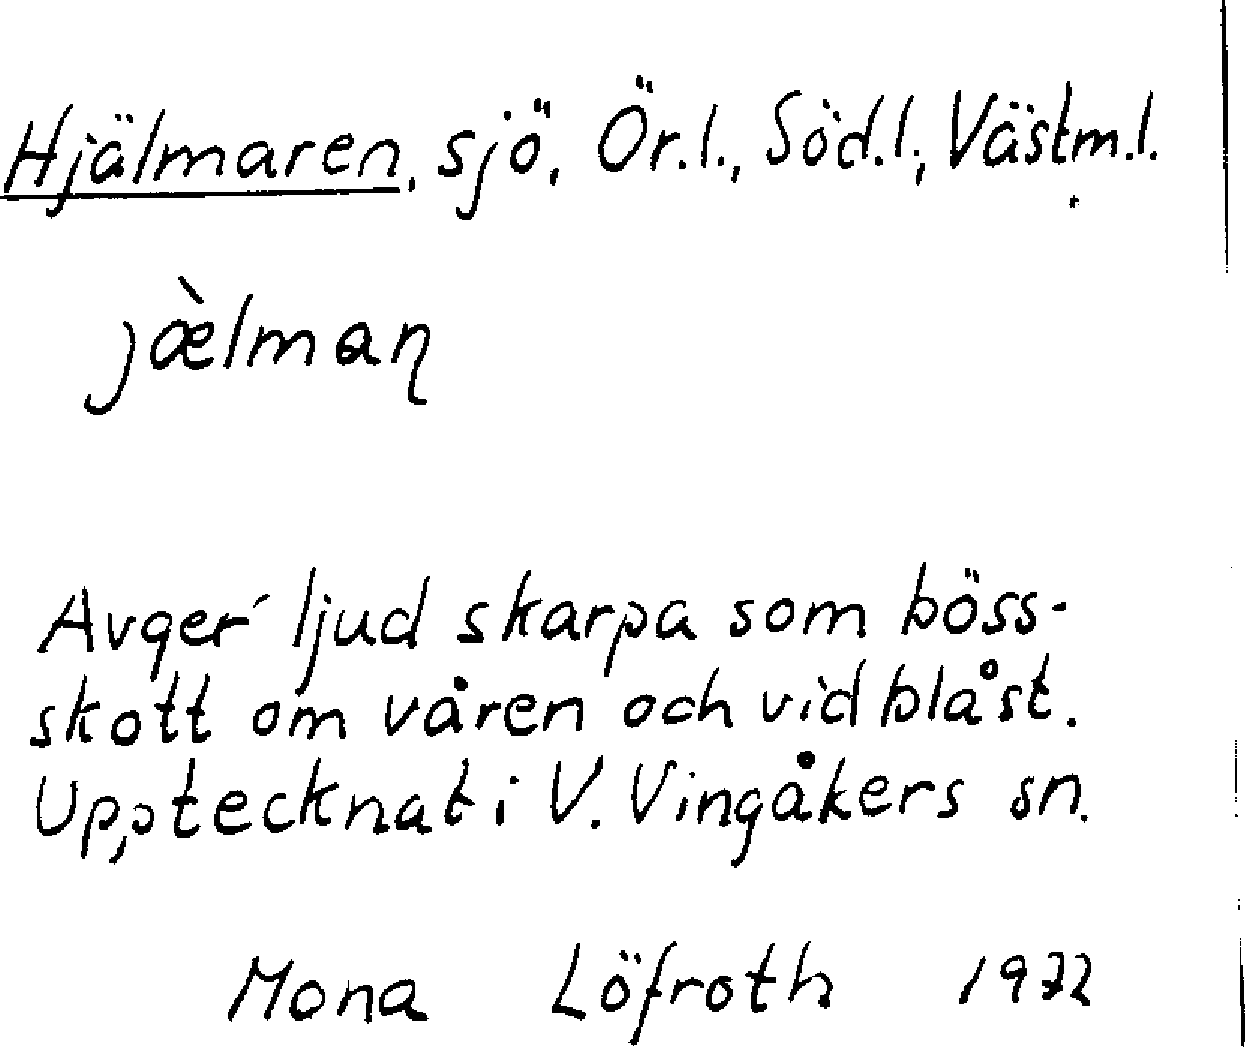 Hjälmaren, sjö, Ör.l., Söd.l., Västm.l.
jæ̀lmaɳ
Avger ljud skarpa som böss-
skott om våren och vid blåst.
Upptecknat i V. Vingåkers sn.
Mona Löfroth 1972